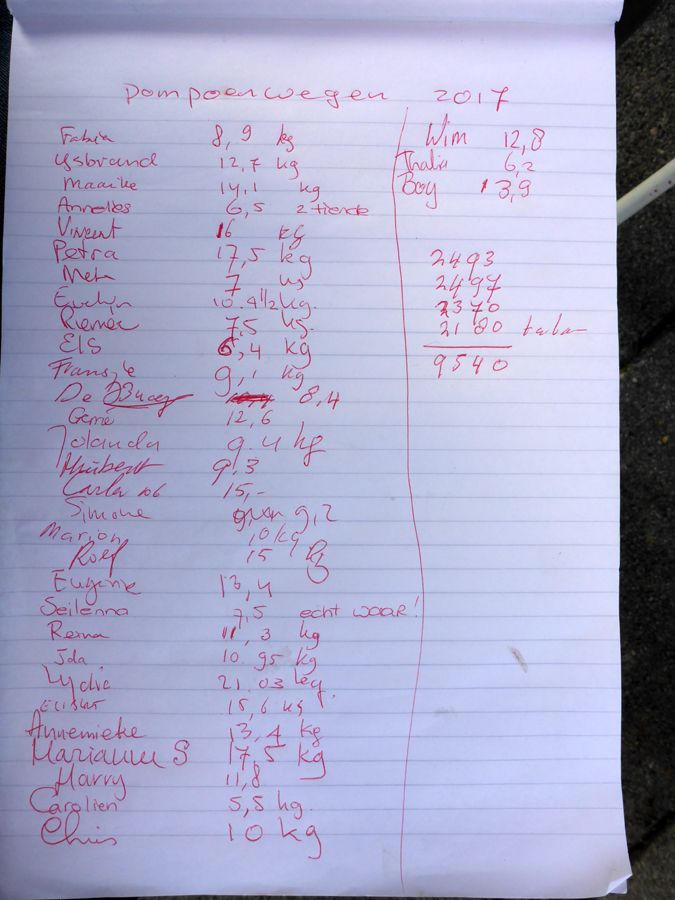 pompoenwegen 2017
Fabia 8,9 kg
Ysbrand 12,7 kg
Maaike 14,1 kg
Annelies 6,5 2 tiende
Vincent 16 kg
Petra 17,5 kg
Meta 7 kg
Evelyn 10.4 1/2 kg.
7,5 kg.
Els 6,4 kg
Fransje 9,1 kg
De 8,4
Gerré 12,6
Jolanda 9.4 kg
Huibert 9,3
Carla 15,-
Simone 9,2
Marion 10 kg
Roef 15 kg
Eugenie 13,4
Seilenna 7,5 echt waar!
Rema 11,3 kg
Ida 10.95 kg
Lydie 21.03 kg.
15,6 kg
Annemieke 13,4 kg
Marianne S 17,5 kg
Harry 11,8
Carolien 5,5 kg.
Chris 10 kg
Wim 12,8
Thalia 6,2
Boy 13,9
2493
2497
2370
2180
9540